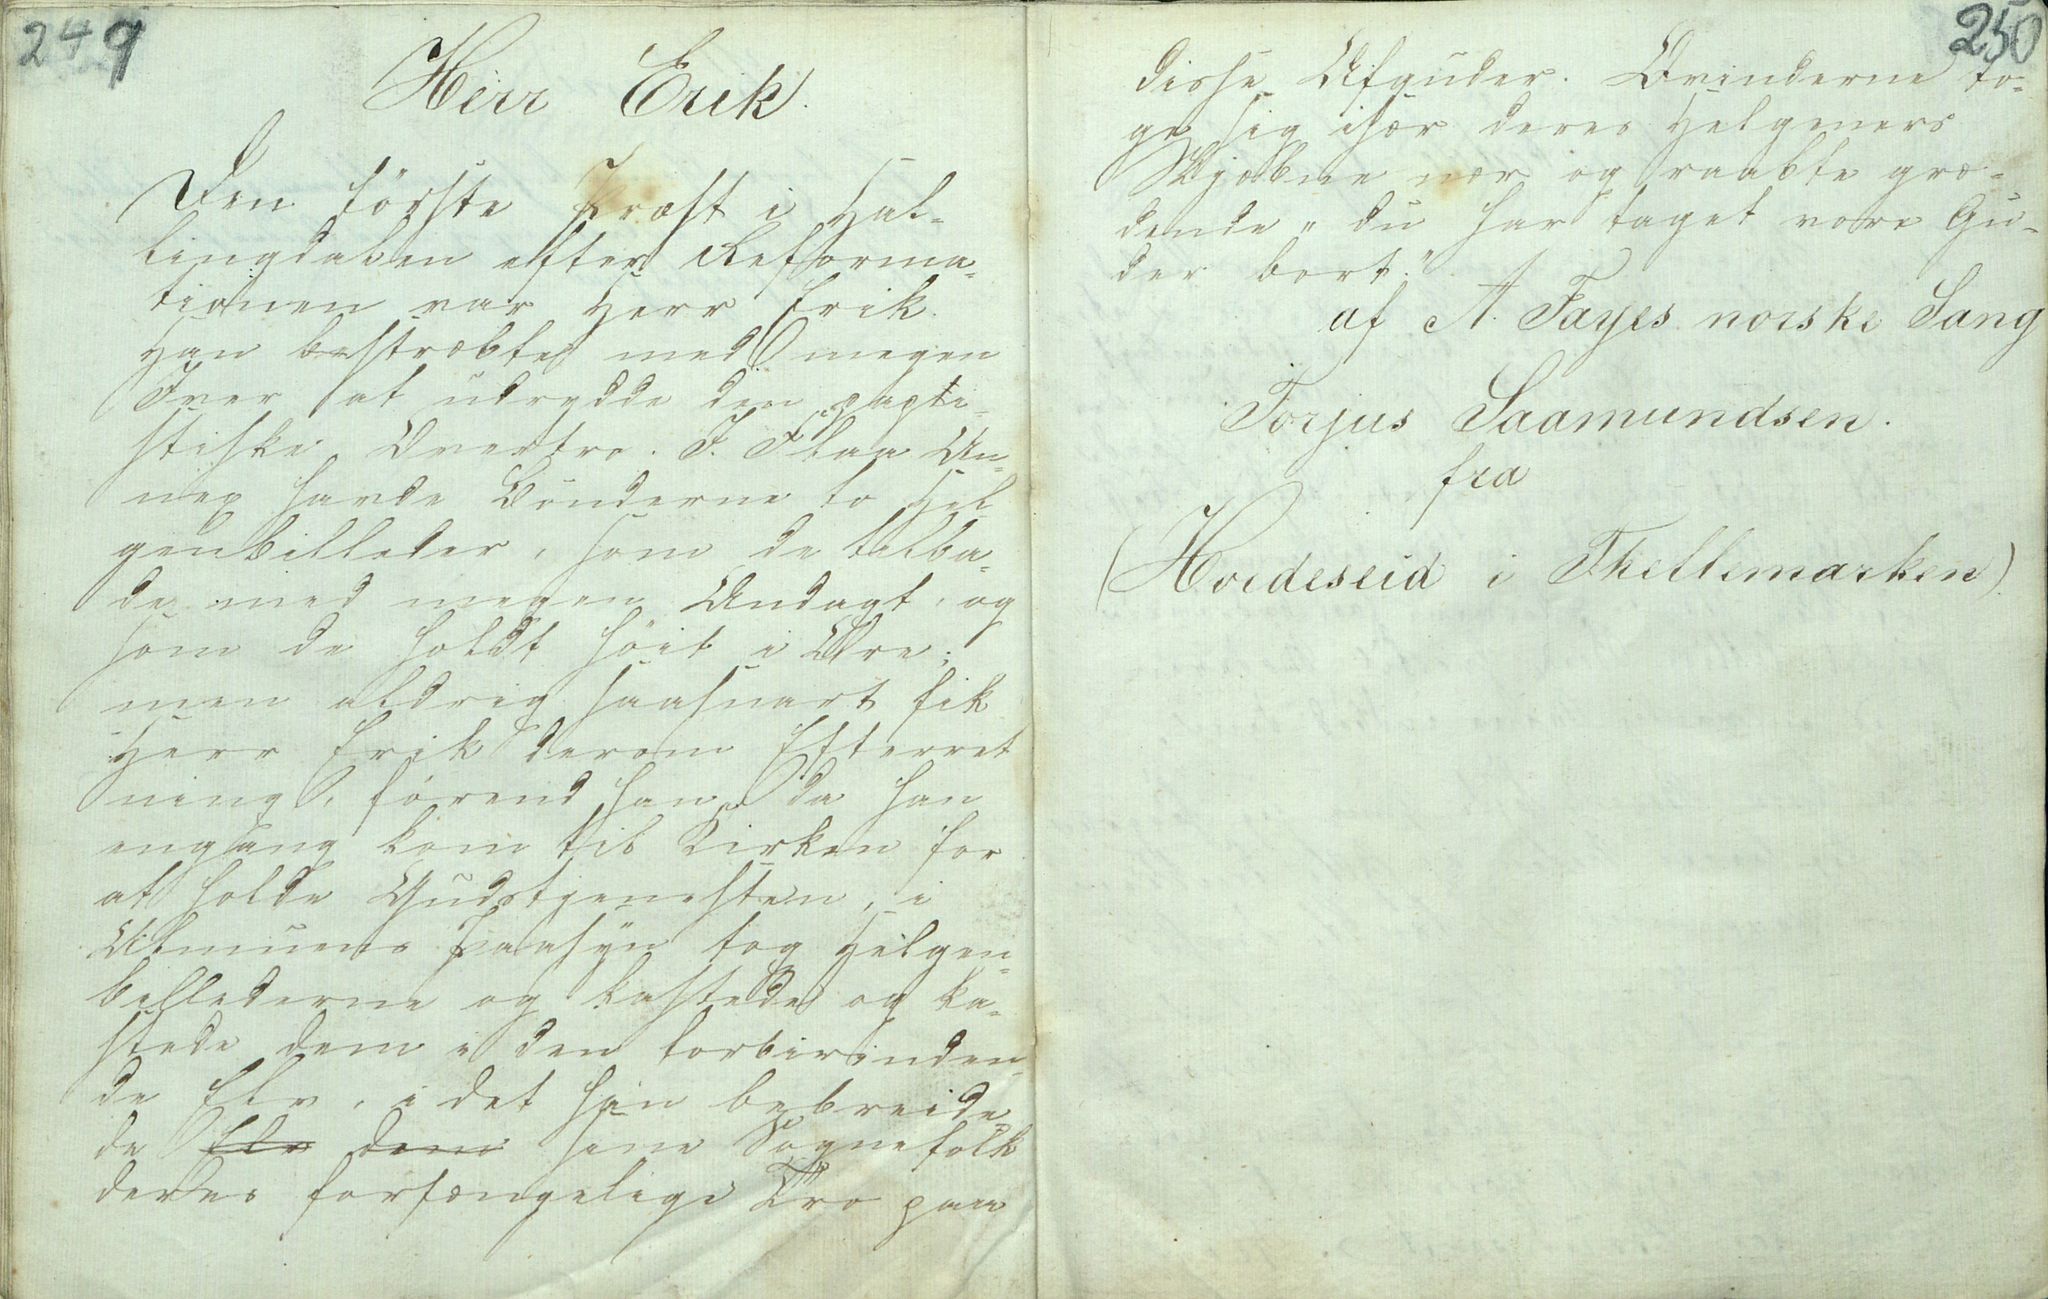 249
Herr Erik.
Den förste Præst i Hal-
lingdalen efter Reforma-
tionen var Herr Erik.
Han bestræbte med megen
Iver at udrydde den papi-
stiske Overtro. I Flaa An-
nex havde Bönderne to Hel
genbilleder, som de tilba-
de med megen Andagt, og
som de holdt höit i Ære;
men aldrig saasnart fik
Herr Erik derom Efterret
ning, förend han, da han
engang kom til Kirken for
at holde Gudstjenesten, i
Almuens Paasyn tog Helgen-
billederne og kastede og ka-
stede dem i den forbirinden-
de Elv, i det han bebreide-
de Elv dem sine Sognefolk
deres forfængelige Tro paa
250
disse Afguder. Qvinderne to-
ge sig især deres Helgeners
Skjæbne nær og raabte græ-
dende „du har taget vore Gu-
der bort."
af A. Fayes norske Sang
Torjus Saamundsen.
fra
(Hvideseid i Thellemarken).